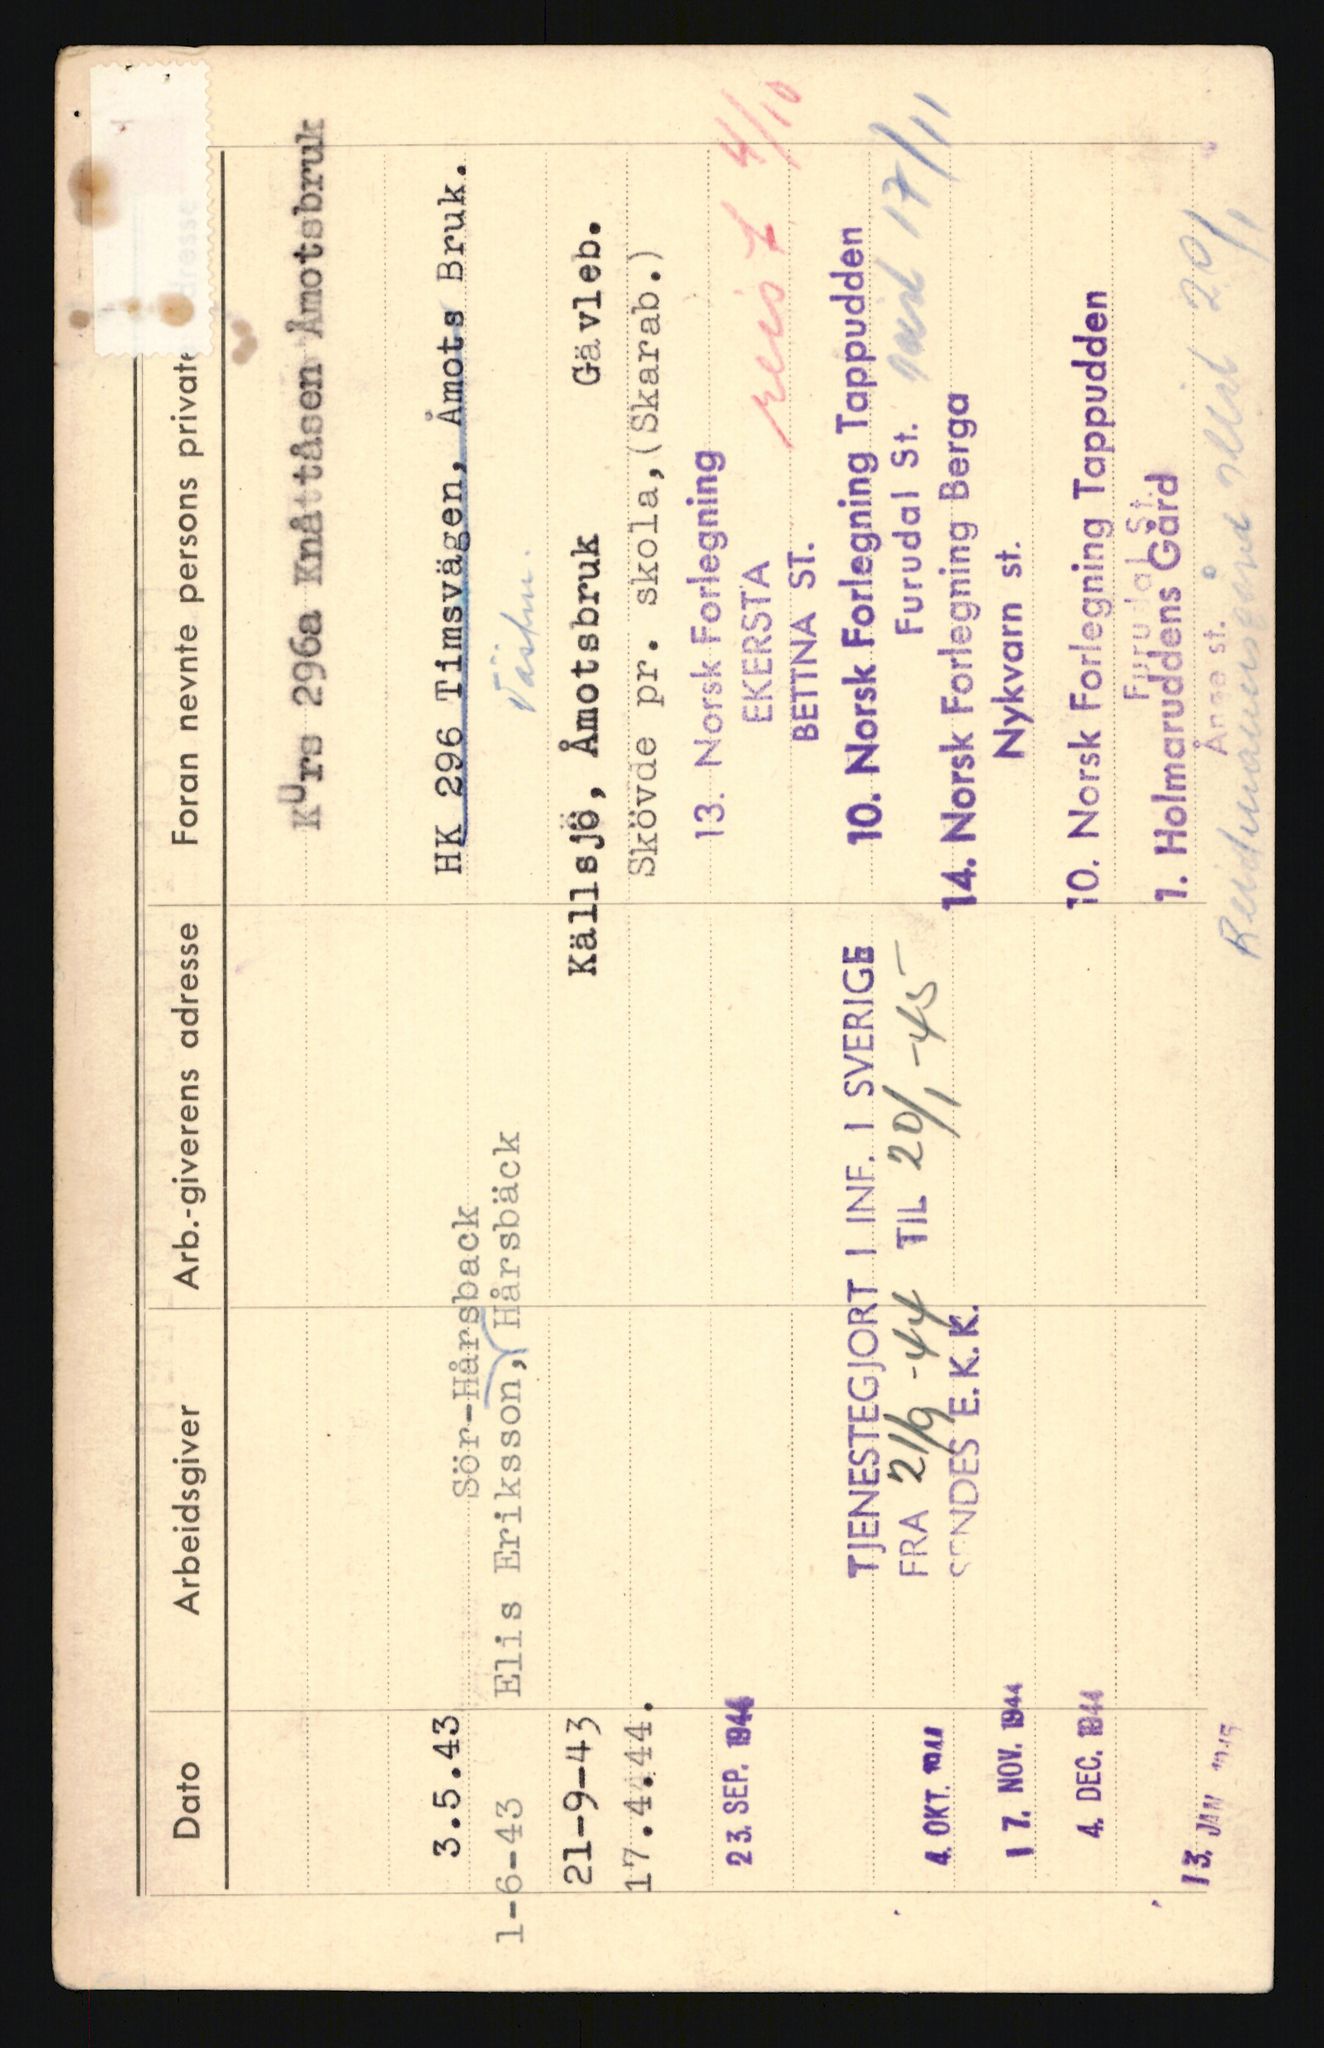 Dato Arbeidsgiver Arb.-giverens adresse Foran nevnte persons private
Kurs 296a Knåttåsen Åmotsbruk
3.5.43 HK 296 Timsvägen, Åmots Bruk.
Sör-Hårsback
1-6-43 Elis Eriksson, Hårsbäck
21-9-43 Källsjö, Åmotsbruk Gävleb.
17.4.44. Skövde pr. skola, (Skarab.)
23. SEP. 1944 13. Norsk Forlegning
EKERSTA
BETTNA ST.
reist 4/10
TJENESTEGJORT I INF. I SVERIGE
FRA 21/9-44 TIL 20/1-45
SENDES E. K. K.
10. Norsk Forlegning Tappudden
Furudal St.
reist 17/11
4. OKT. 1944 14. Norsk Forlegning Berga
17. NOV. 1944 Nykvarn st.
4. DEC. 1944 10. Norsk Forlegning Tappudden
Furudal St.
1. Holmaruddens Gård
13. JAN 1945 Ånge st.
20/1